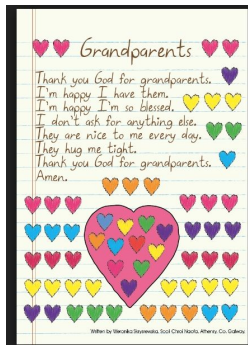 Grandparents
Thank you God for grandparents.
I'm happy I have them.
I'm happy I'm so blessed.
I don't ask for anything else.
They are nice to me every day.
They hug me tight.
Thank you God for grandparents.
Amen.
Written by Weronika Stayszewska, Scoil Chroí Naofa, Athenry, Co. Galway.